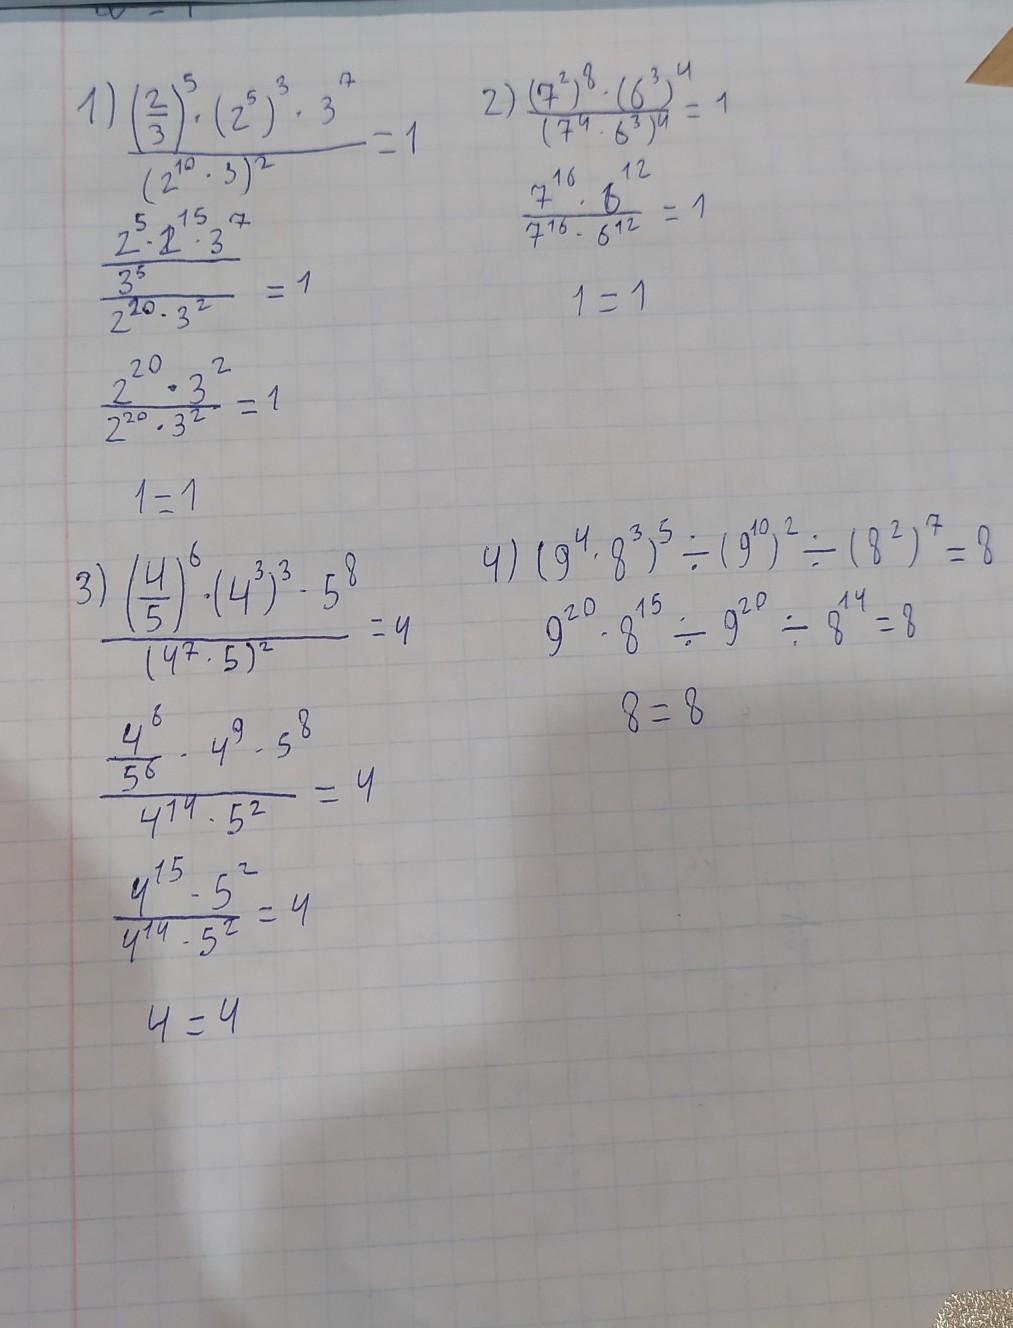 1) ((2/3)^5 · (2^5)^3 · 3^7) / (2^10 · 3)^2 = 1
((2^5 · 2^15 · 3^7) / 3^5) / (2^20 · 3^2) = 1
(2^20 · 3^2) / (2^20 · 3^2) = 1
1 = 1
2) ((7^2)^8 · (6^3)^4) / (7^4 · 6^3)^4 = 1
(7^16 · 6^12) / (7^16 · 6^12) = 1
1 = 1
3) ((4/5)^6 · (4^3)^3 · 5^8) / (4^7 · 5)^2 = 4
(4^6/5^6 · 4^9 · 5^8) / (4^14 · 5^2) = 4
(4^15 · 5^2) / (4^14 · 5^2) = 4
4 = 4
4) (9^4 · 8^3)^5 ÷ (9^10)^2 ÷ (8^2)^7 = 8
9^20 · 8^15 ÷ 9^20 ÷ 8^14 = 8
8 = 8